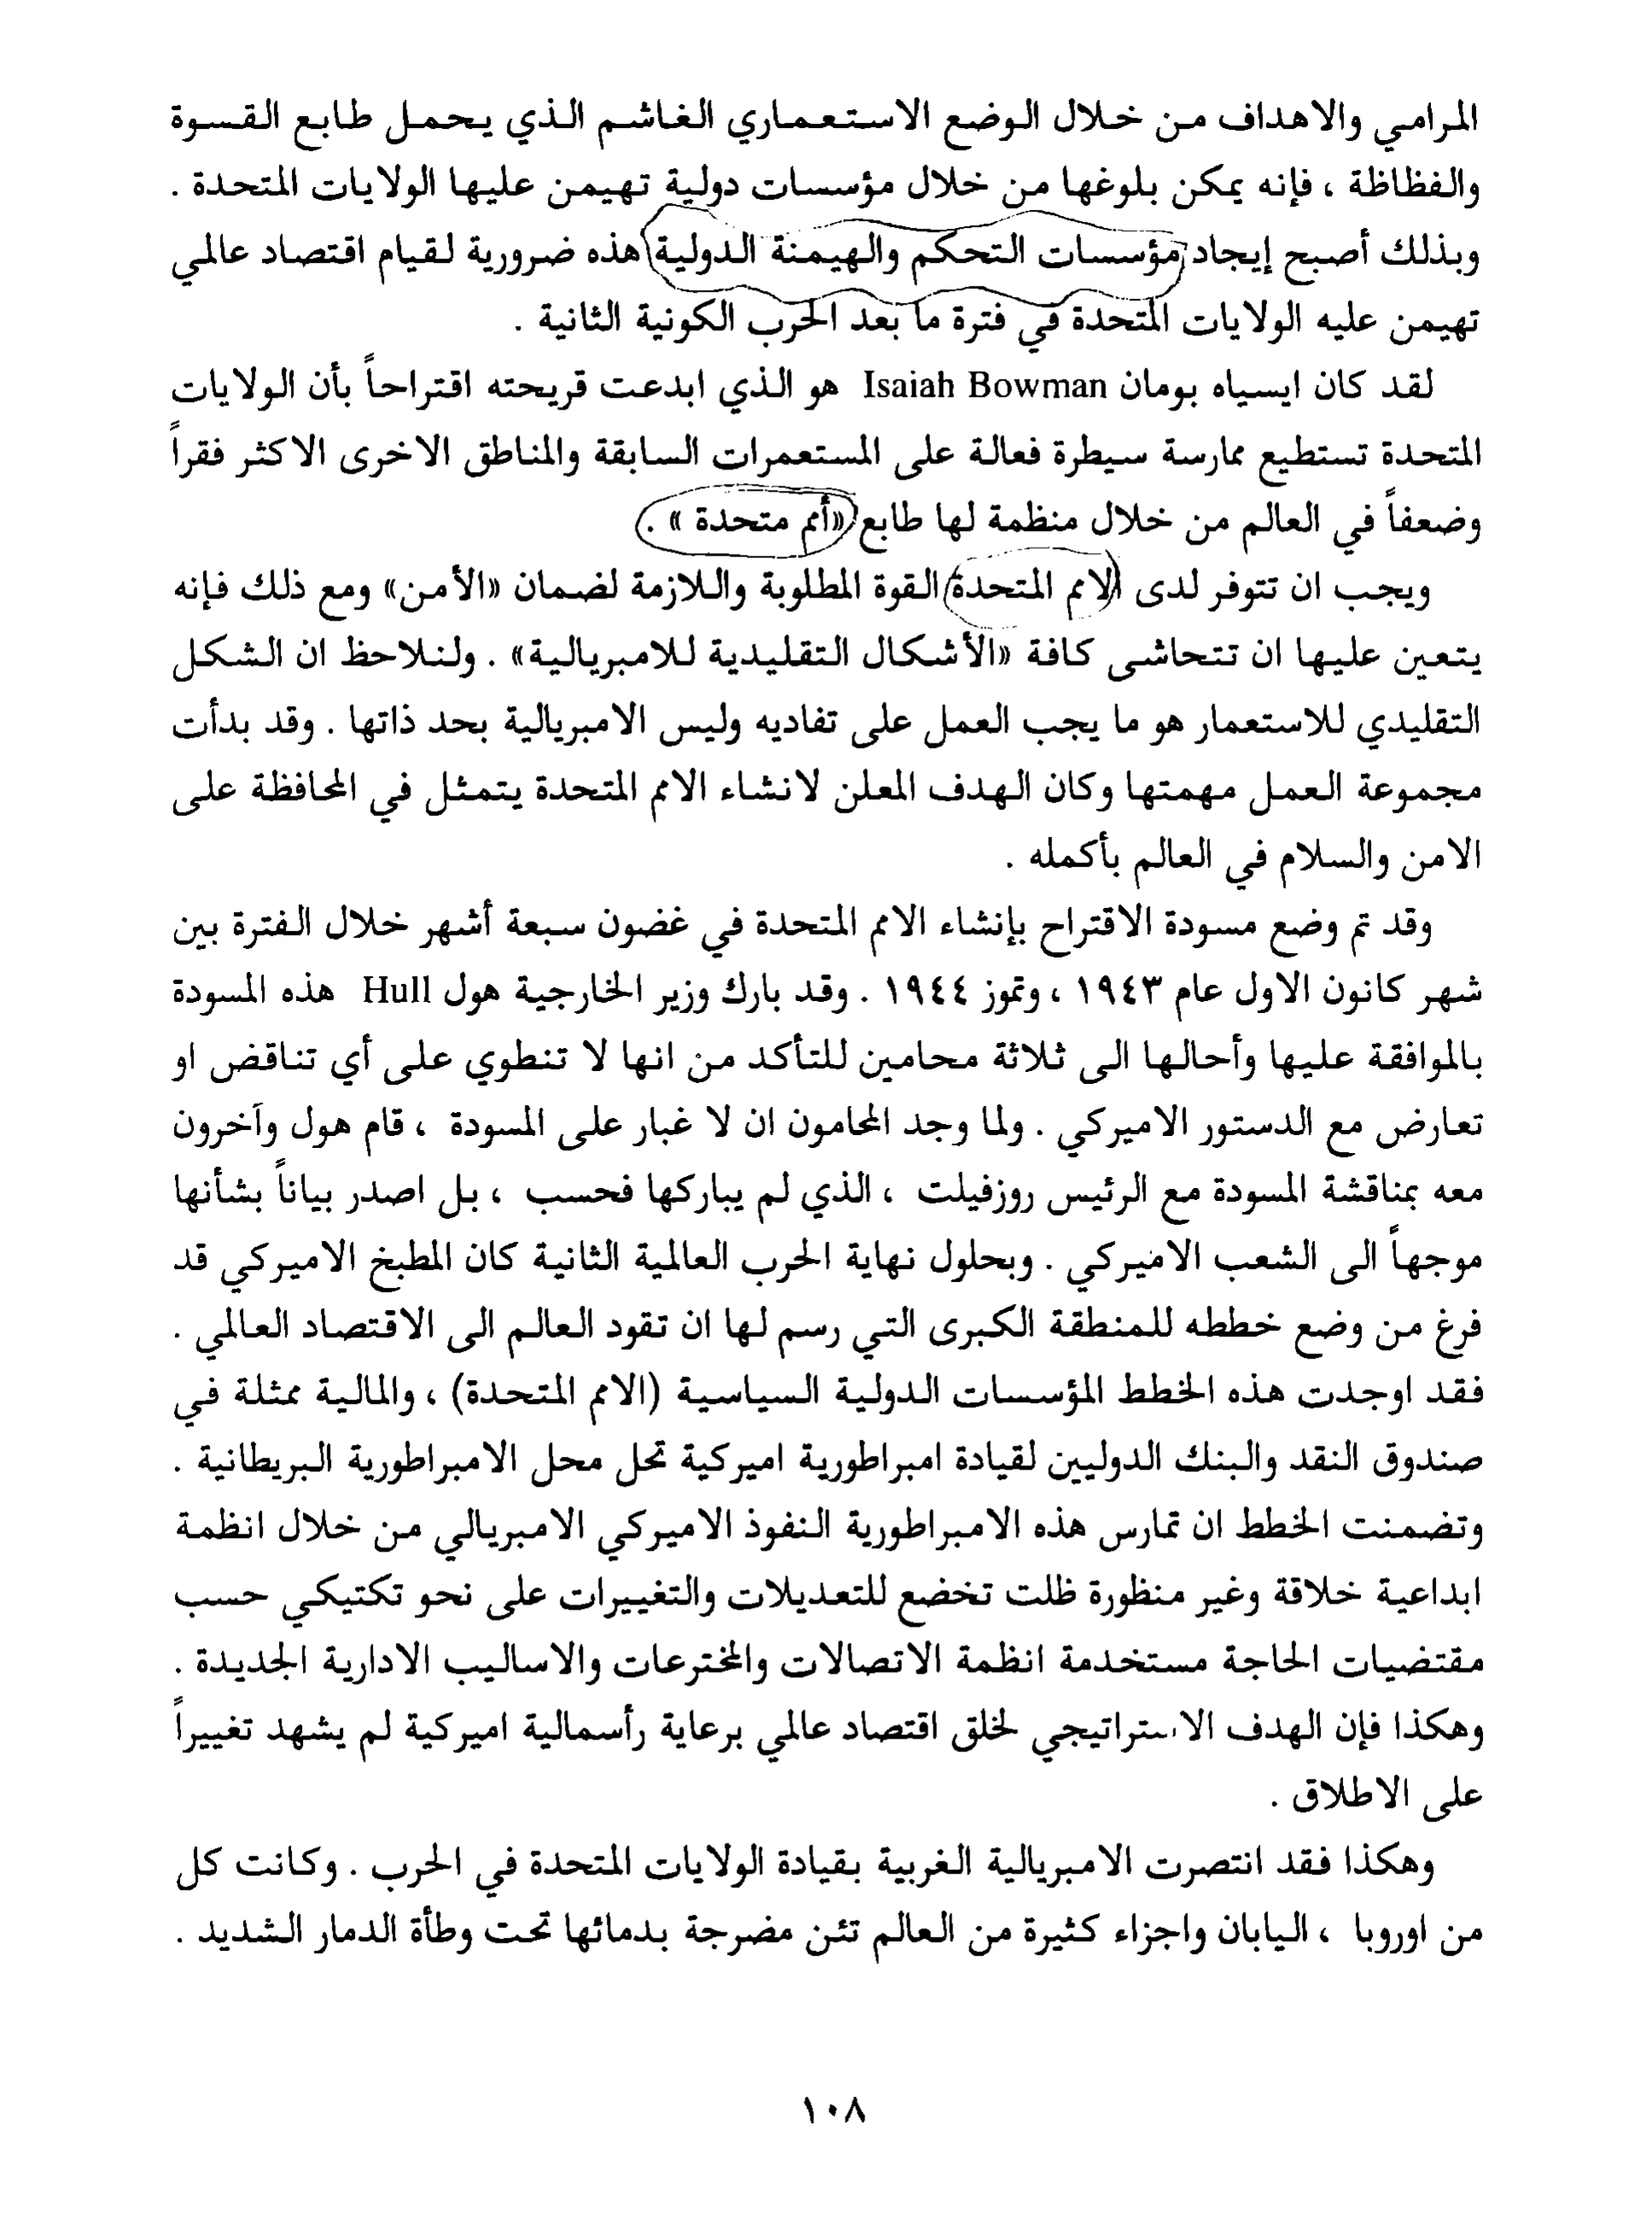 المرامي والاهداف من خلال الوضع الاستعماري الغاشم الذي يحمل طابع القسوة
والفظاظة ، فإنه يمكن بلوغها من خلال مؤسسات دولية تهيمن عليها الولايات المتحدة .
وبذلك أصبح إيجاد مؤسسات التحكم والهيمنة الدولية هذه ضرورية لقيام اقتصاد عالمي
تهيمن عليه الولايات المتحدة في فترة ما بعد الحرب الكونية الثانية .
لقد كان ايسياه بومان Isaiah Bowman هو الذي ابدعت قريحته اقتراحاً بأن الولايات
المتحدة تستطيع ممارسة سيطرة فعالة على المستعمرات السابقة والمناطق الاخرى الاكثر فقراً
وضعفاً في العالم من خلال منظمة لها طابع «أمم متحدة » .
ويجب ان تتوفر لدى الامم المتحدة القوة المطلوبة واللازمة لضمان «الأمن» ومع ذلك فإنه
يتعين عليها ان تتحاشى كافة «الأشكال التقليدية للامبريالية» . ولنلاحظ ان الشكل
التقليدي للاستعمار هو ما يجب العمل على تفاديه وليس الامبريالية بحد ذاتها . وقد بدأت
مجموعة العمل مهمتها وكان الهدف المعلن لانشاء الامم المتحدة يتمثل في المحافظة على
الامن والسلام في العالم بأكمله .
وقد تم وضع مسودة الاقتراح بإنشاء الامم المتحدة في غضون سبعة أشهر خلال الفترة بين
شهر كانون الاول عام ١٩٤٣ ، وتموز ١٩٤٤ . وقد بارك وزير الخارجية هول Hull هذه المسودة
بالموافقة عليها وأحالها الى ثلاثة محامين للتأكد من انها لا تنطوي على أي تناقض او
تعارض مع الدستور الاميركي . ولما وجد المحامون ان لا غبار على المسودة ، قام هول وآخرون
معه بمناقشة المسودة مع الرئيس روزفيلت ، الذي لم يباركها فحسب ، بل اصدر بياناً بشأنها
موجهاً الى الشعب الاميركي . وبحلول نهاية الحرب العالمية الثانية كان المطبخ الاميركي قد
فرغ من وضع خططه للمنطقة الكبرى التي رسم لها ان تقود العالم الى الاقتصاد العالمي .
فقد اوجدت هذه الخطط المؤسسات الدولية السياسية (الامم المتحدة) ، والمالية ممثلة في
صندوق النقد والبنك الدوليين لقيادة امبراطورية اميركية تحل محل الامبراطورية البريطانية .
وتضمنت الخطط ان تمارس هذه الامبراطورية النفوذ الاميركي الامبريالي من خلال انظمة
ابداعية خلاقة وغير منظورة ظلت تخضع للتعديلات والتغييرات على نحو تكتيكي حسب
مقتضيات الحاجة مستخدمة انظمة الاتصالات والمخترعات والاساليب الادارية الجديدة .
وهكذا فإن الهدف الاستراتيجي لخلق اقتصاد عالمي برعاية رأسمالية اميركية لم يشهد تغييراً
على الاطلاق .
وهكذا فقد انتصرت الامبريالية الغربية بقيادة الولايات المتحدة في الحرب . وكانت كل
من اوروبا ، اليابان واجزاء كثيرة من العالم تئن مضرجة بدمائها تحت وطأة الدمار الشديد .
١٠٨